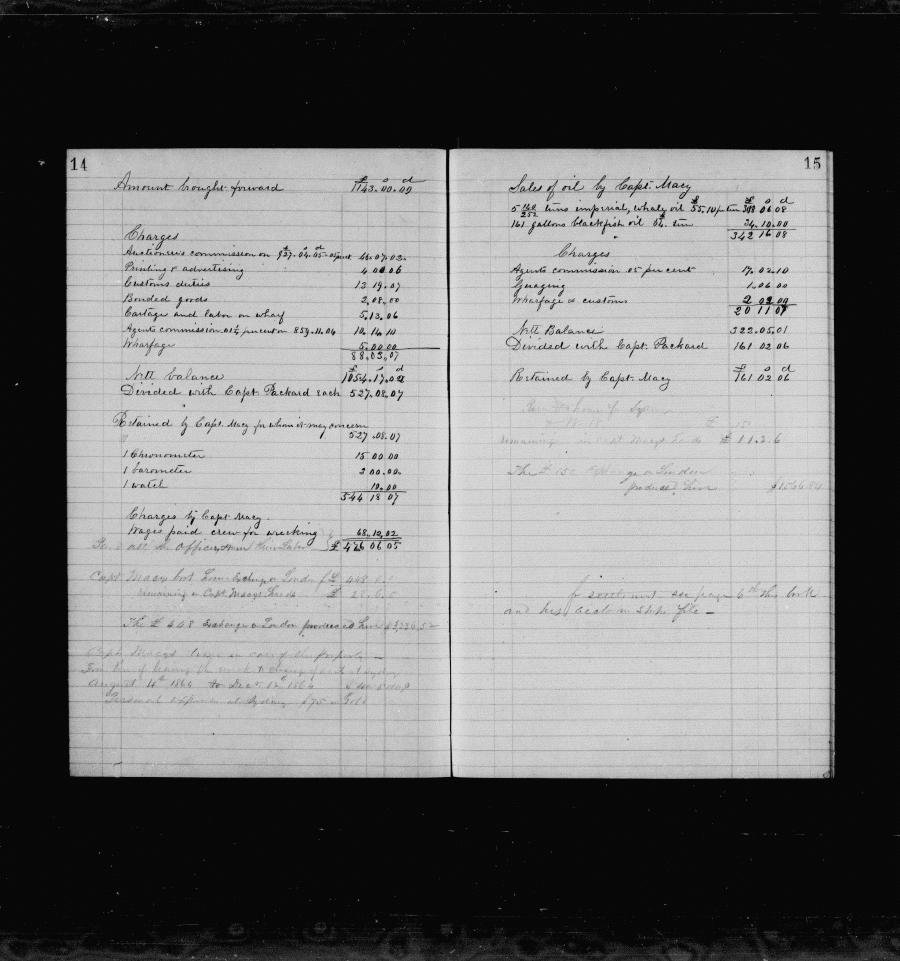 14
Amount brought forward £1143.00.09
£ s d
Charges
Auctioneers commission on £927.04.05 05 pr ct 46.07.02
Printing & advertising 4 00 06
Customs duties 13 19.07
Bonded goods 2,08,00
Cartage and labor on wharf 5.13.06
Agents commission 01¼ per cent on 859.11.04 10.14.10
Wharfage 5.00 00
88.03.07
£ s d
Nett balance 1054.17.02
Divided with Capt. Packard each 527.08.07
Retained by Capt. Macy for whom it may concern
527.08.07
1 Chronometer 15 00 00
1 barometer 2 00.00
1 watch 10.00
544 18 07
Charges by Capt. Macy.
Wages paid crew for wrecking 68.12,02
all the Officers £ 476 06 05
Capt. Macy Exchange on London £ 448
remaining in Capt Macys hands £ 28.6.5
The £ 448 Exchange on London produced here
Capt Macys
August 4th 1864 to Decr. 12th 1864
Personal Expenses at Sydney $75 in Gold
15
Sales of oil by Capt. Macy
£ s d
5 160/252 tuns imperial, whale oil £55.10 pr tun 308 06 08
161 gallons blackfish oil £54. tun 34.10.00
342 16 08
Charges
Agents commission 05 per cent 17.02.10
Guaging 1.06 00
Wharfage & customs 2 02 09
20 11 07
Nett Balance 322.05.01
Divided with Capt. Packard 161 02 06
£ s d
Retained by Capt. Macy 161 02 06
£ 150
remaining in Capt Macys hands £ 11.2.6
The £ 150 Exchange on London
produced here
for settlement see page 6th this book
and his acct in Ships file